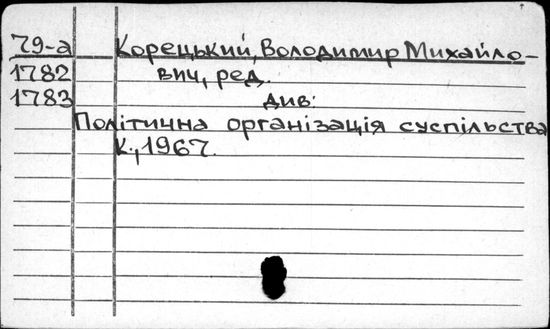 79-а Корецький, Володимир Михайло-
1782 вич, ред.
1783 див:
Політична організація суспільства
К., 1967.